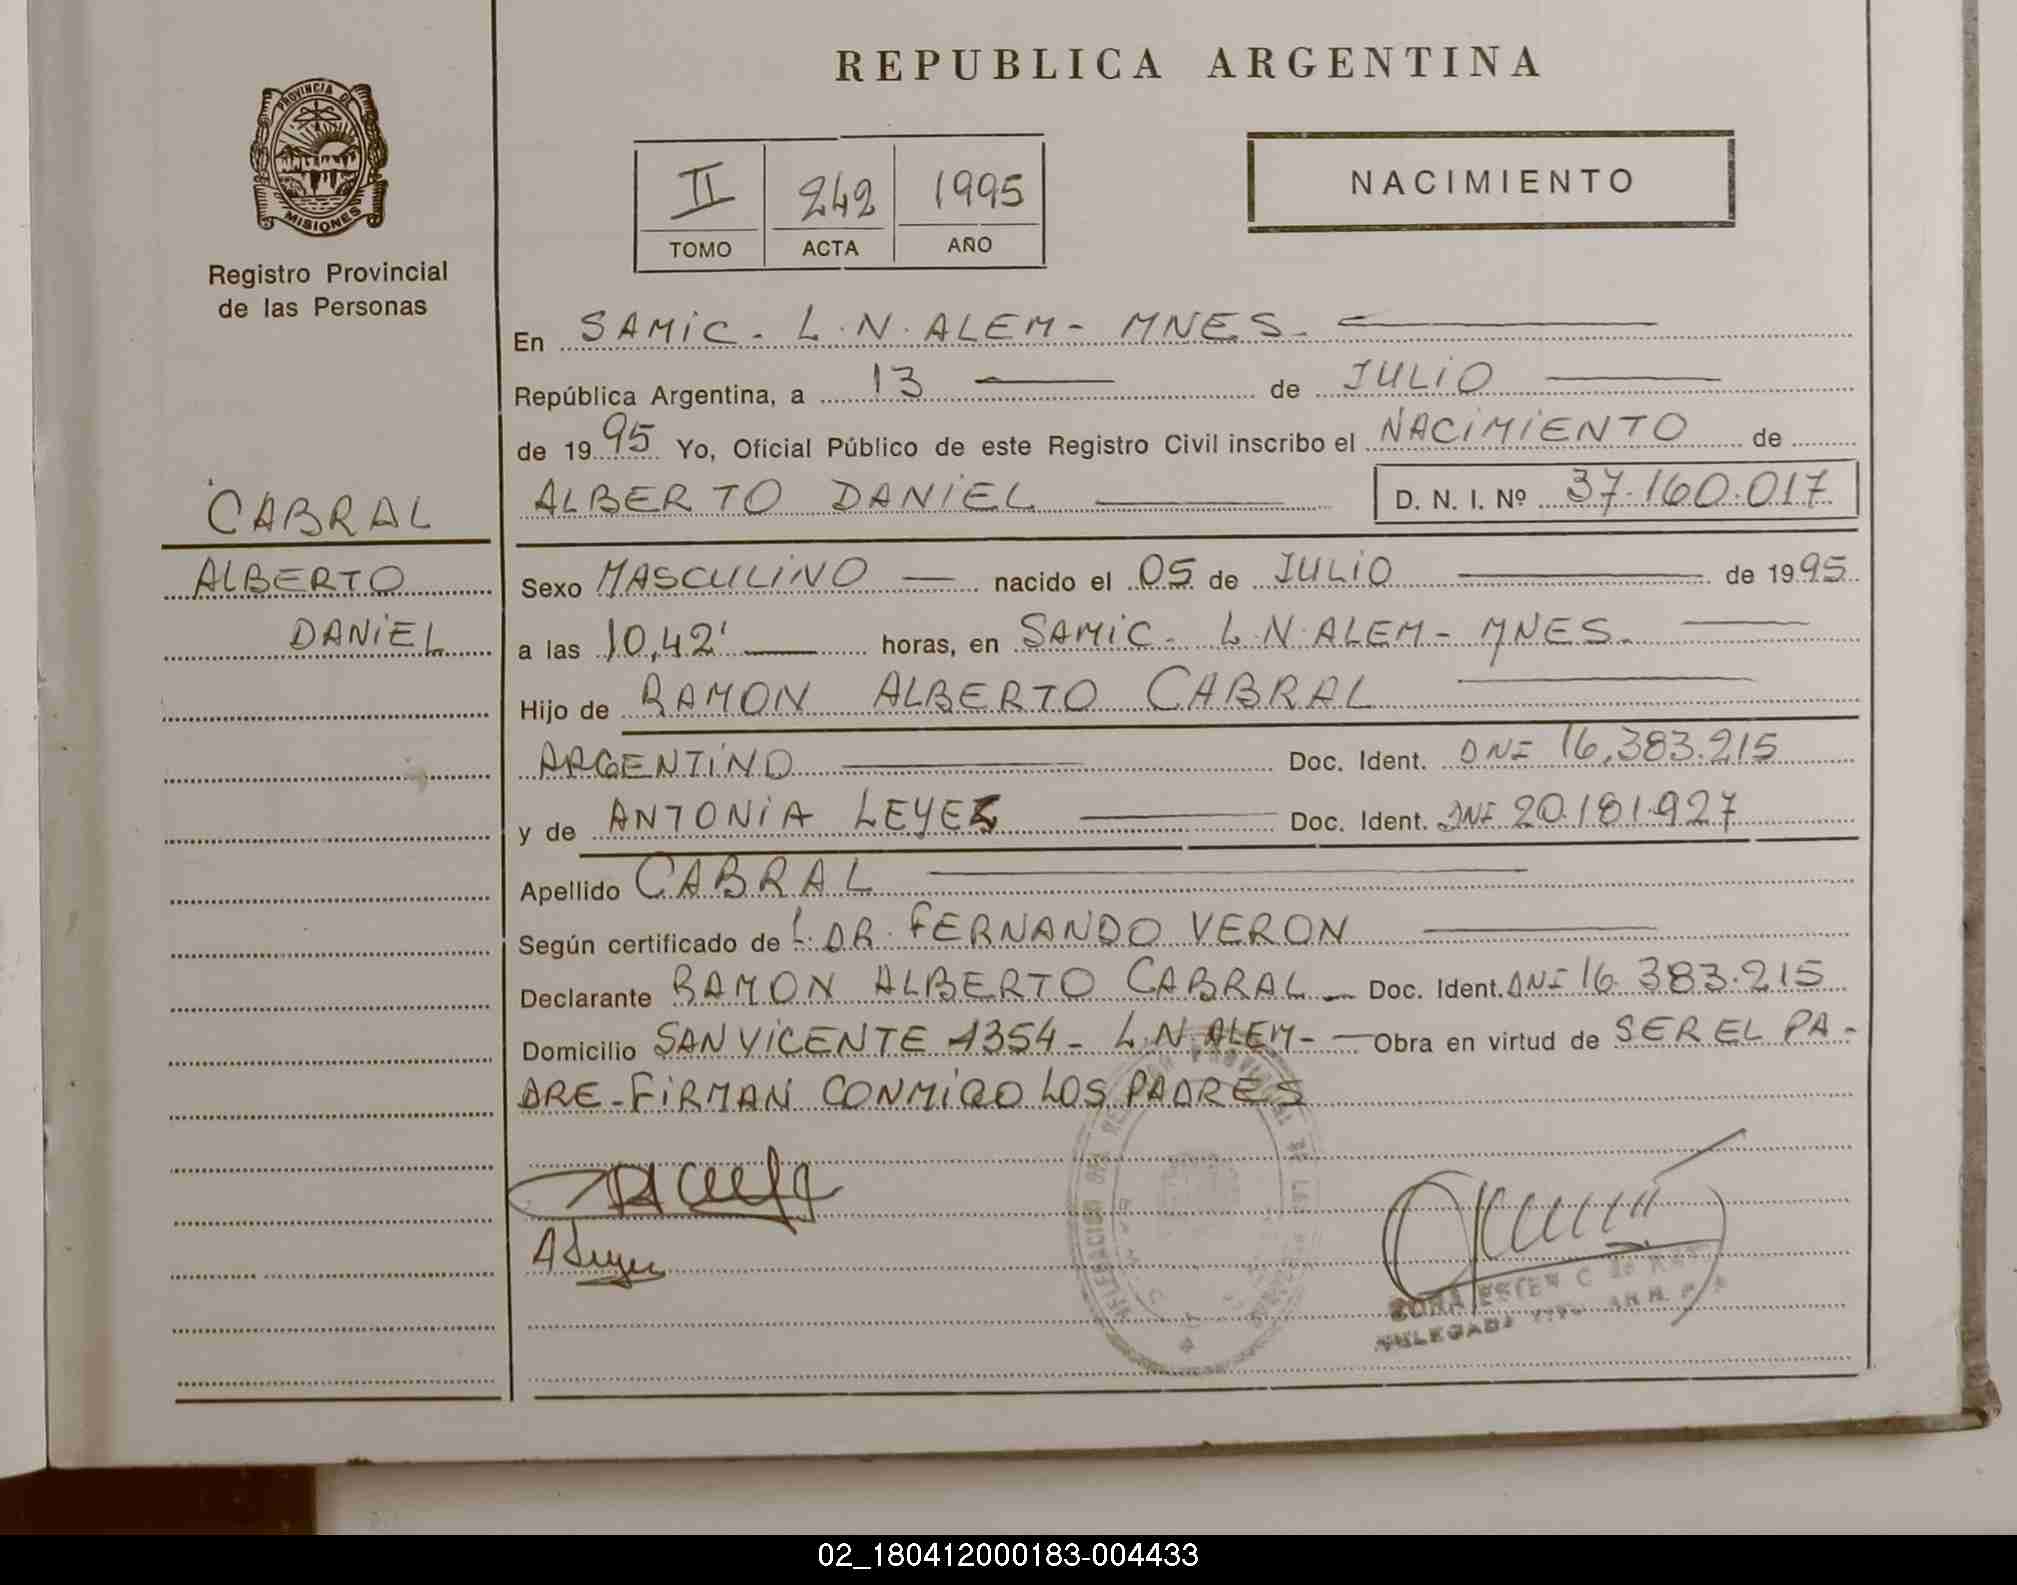 REPUBLICA ARGENTINA
PROVINCIA DE
MISIONES
Registro Provincial
de las Personas
II 242 1995
TOMO ACTA AÑO
NACIMIENTO
En SAMIC - L.N. ALEM - MNES -
República Argentina, a 13 de JULIO
de 1995 Yo, Oficial Público de este Registro Civil inscribo el NACIMIENTO de
ALBERTO DANIEL D. N. I. Nº 37.160.017
CABRAL
ALBERTO
DANIEL
Sexo MASCULINO nacido el 05 de JULIO de 1995
a las 10,42' horas, en SAMIC - L.N. ALEM - MNES -
Hijo de RAMON ALBERTO CABRAL
ARGENTINO Doc. Ident. DNI 16.383.215
y de ANTONIA LEYES Doc. Ident. DNI 20.181.927
Apellido CABRAL
Según certificado de L. DR. FERNANDO VERON
Declarante RAMON ALBERTO CABRAL - Doc. Ident. DNI 16.383.215
Domicilio SAN VICENTE 1354 - L.N. ALEM - Obra en virtud de SER EL PA-
DRE - FIRMAN CONMIGO LOS PADRES
02_180412000183-004433